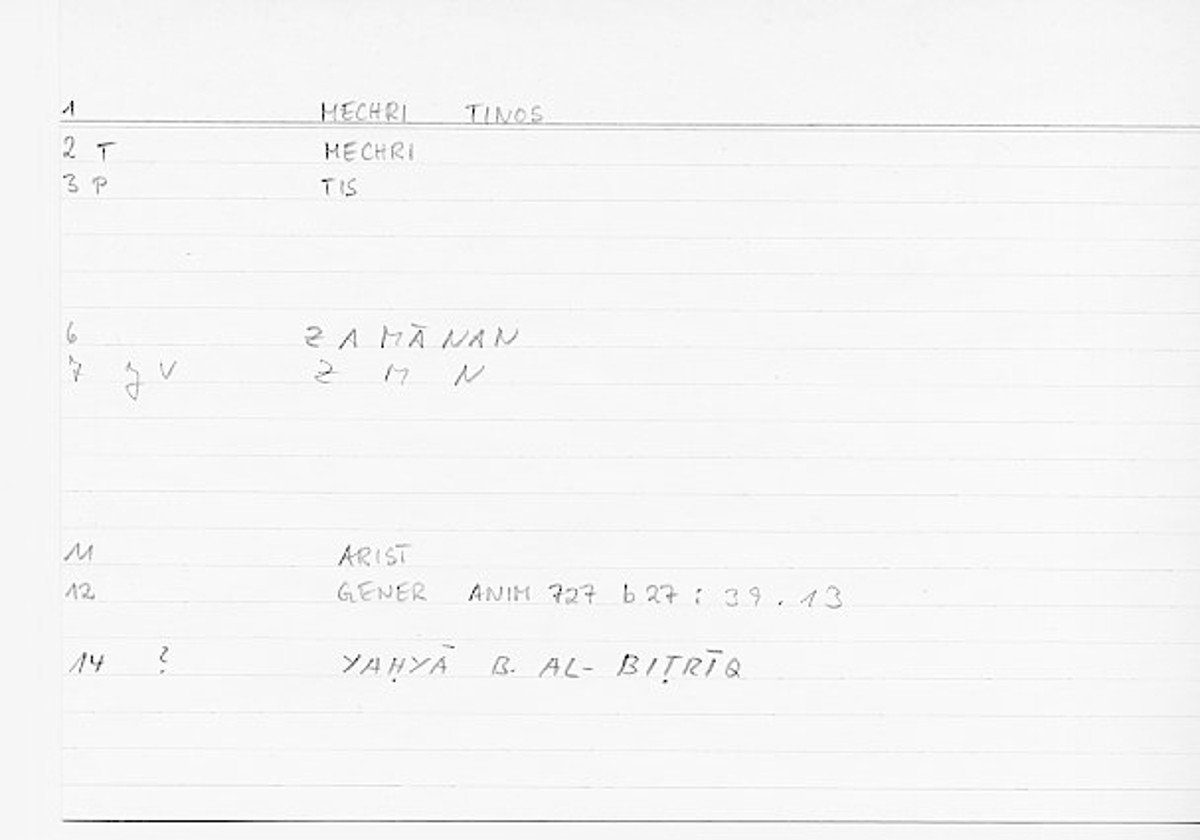 1 MECHRI TINOS
2 T MECHRI
3 P TIS
6 ZAMĀNAN
7 g V Z M N
11 ARIST
12 GENER ANIM 727 b 27 : 39.13
14 ? YAḤYĀ B. AL-BIṬRĪQ